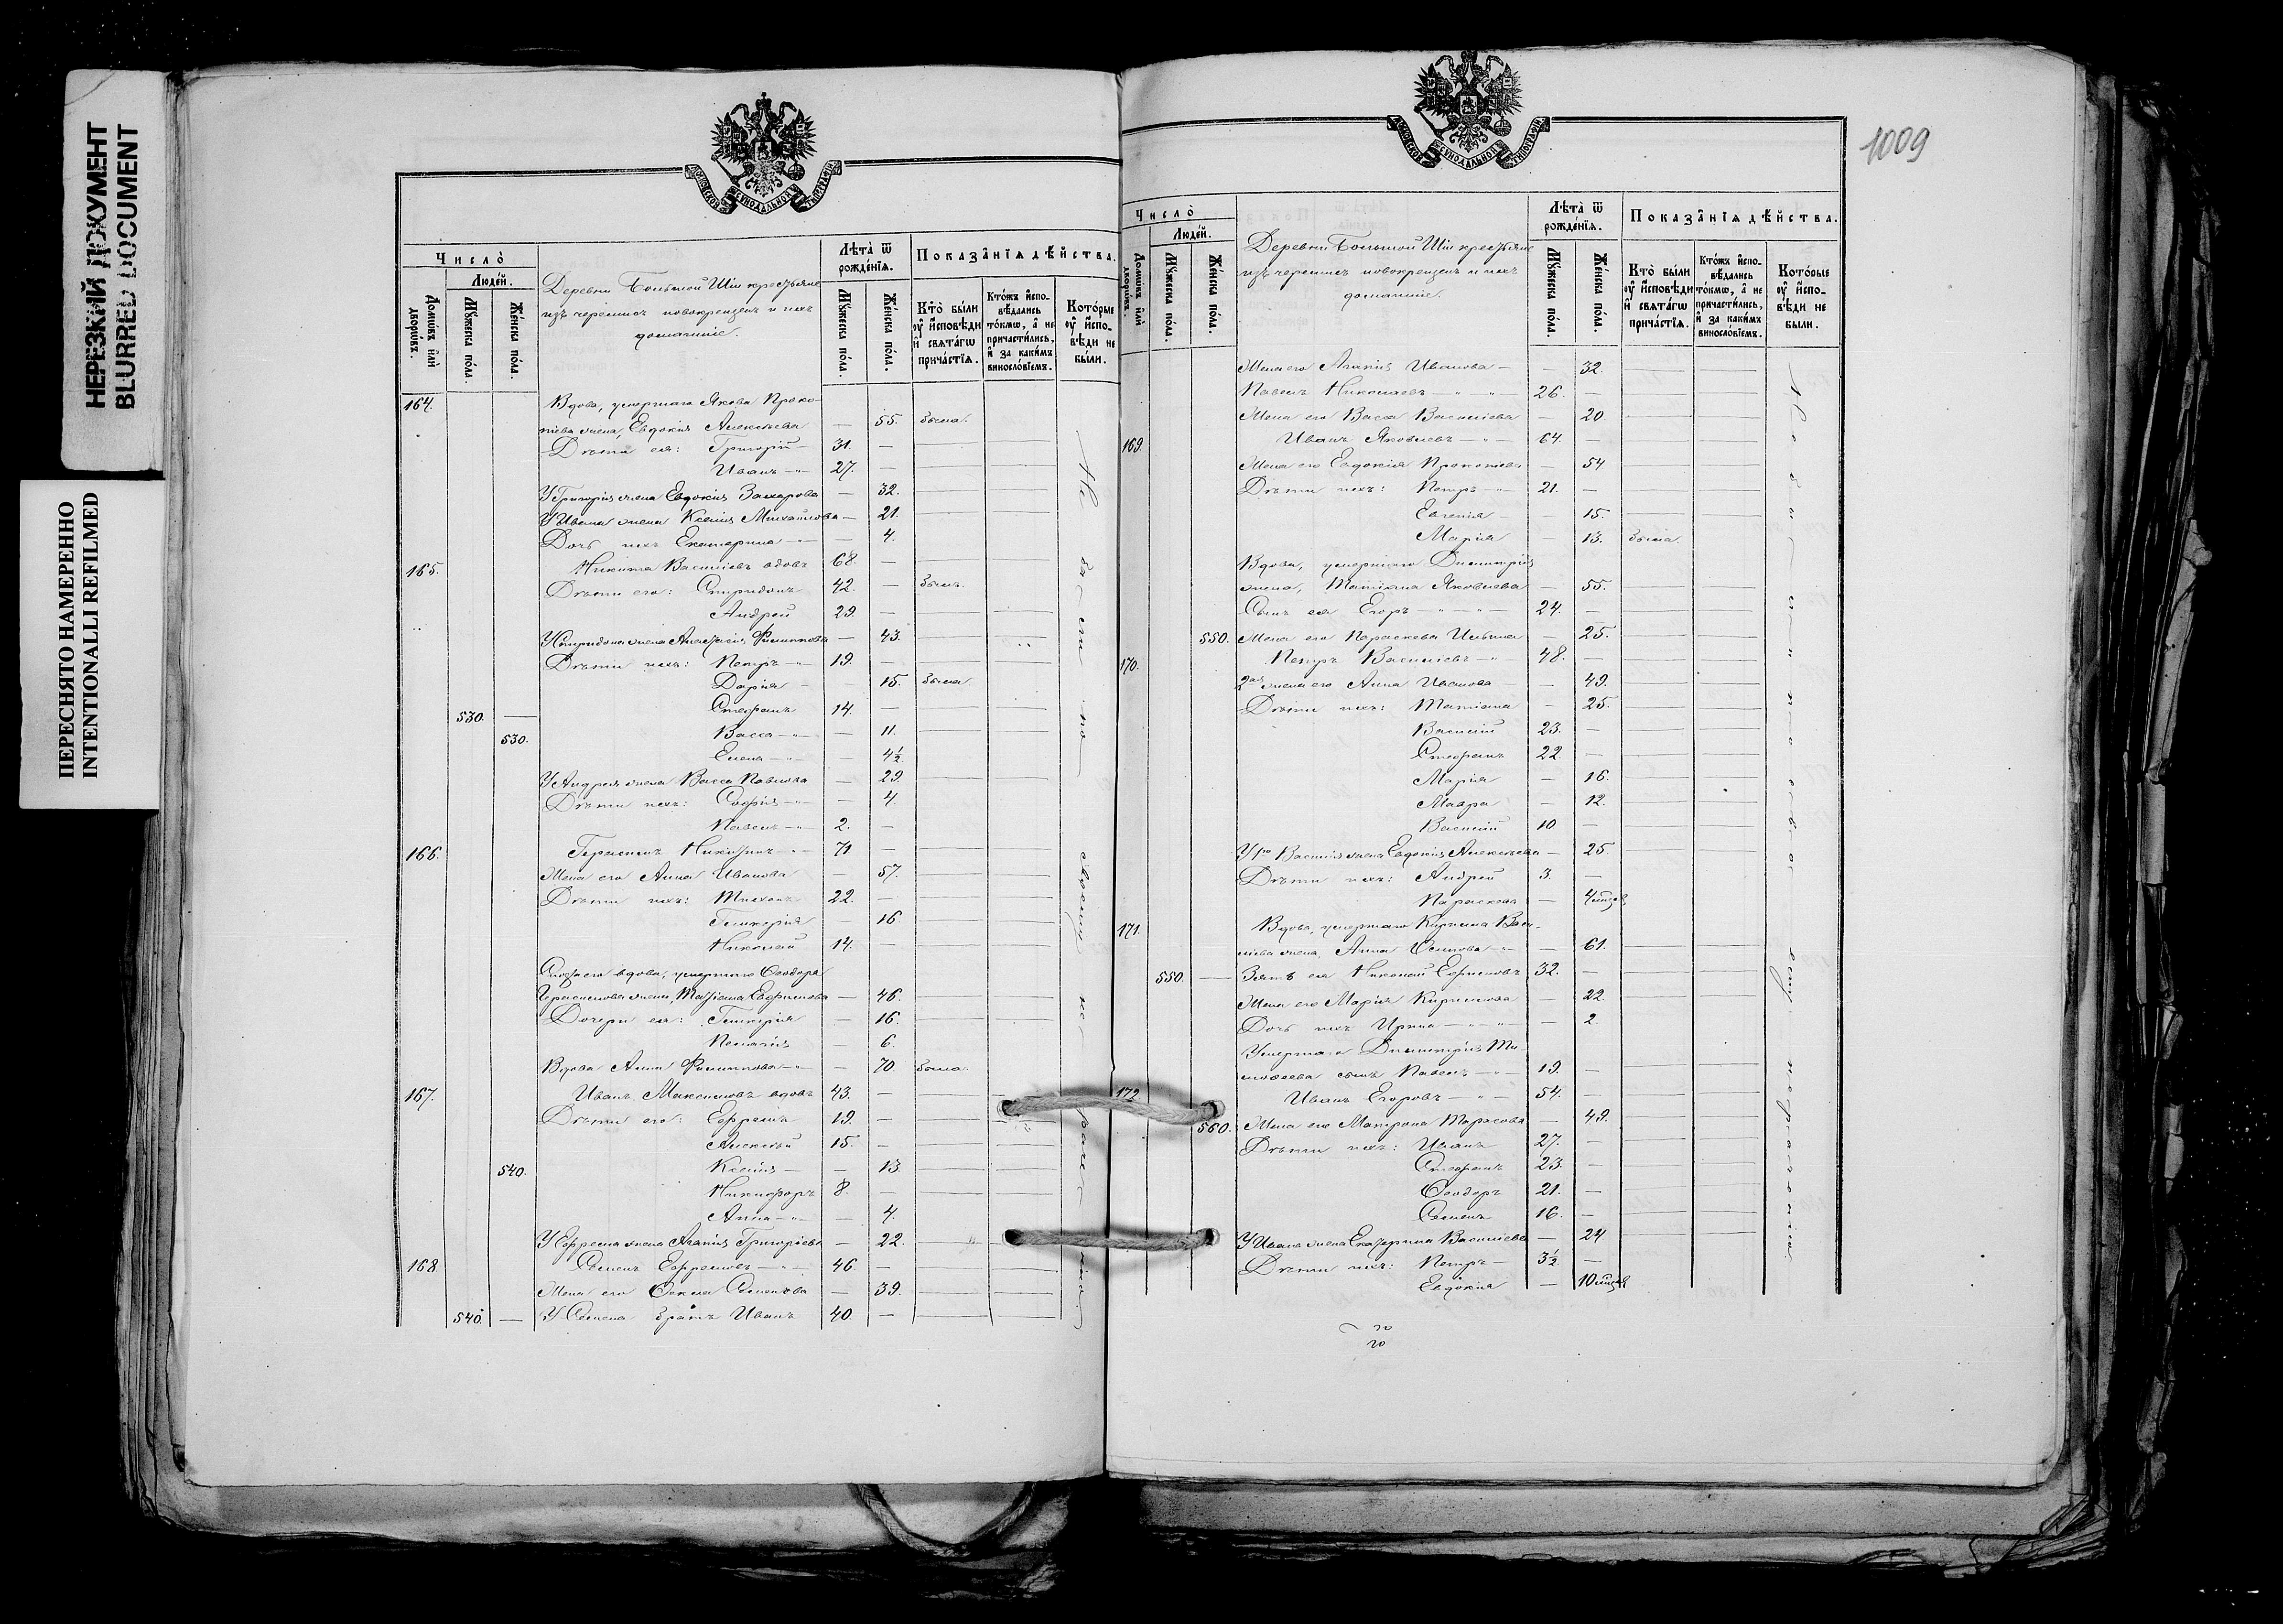 НЕРЕЗКИЙ ДОКУМЕНТ
BLURRED DOCUMENT
ПЕРЕСНЯТО НАМЕРЕННО
INTENTIONALLI REFILMED
МОСКОВСКОЙ СѴНОДАЛЬНОЙ ТИПОГРАФІИ
Число̀
Людéй.
Домѡ́въ и҆лѝ дворѡ́въ.
Мꙋ́жеска по́ла.
Же́нска по́ла.
Деревни Большой Ши крестьяне
изъ черемис новокрещенъ и ихъ
домашніе.
Лѣ́та ѿ рожде́нїѧ.
Мꙋ́жеска по́ла.
Же́нска по́ла.
Показа̑нїѧ дѣ́йства.
Кто̀ бы́ли ᲂу҆ и҆сповѣ́ди и҆ свѧта́гѡ прича́стїѧ.
Кто́жъ и҆спо-вѣ́дались то́кмѡ, а҆ не причасти́лись, и҆ за каки́мъ винослові́емъ.
Кото́рые ᲂу҆ и҆спо-вѣ́ди не бы́ли.
164. Вдова, умершаго Якова Проко-
піева жена, Евдокія Алексѣева — 55. была.
Дѣти ея: Григорій — 31. —
Иванъ — 27. —
У Григорія жена Евдокія Захарова — 32.
У Ивана жена Ксенія Михайлова — 21.
Дочь ихъ Екатерина — 4.
165. Никита Васильевъ вдовъ 68. —
Дѣти его: Спиридонъ 42. — былъ.
Андрей 29. —
У Спиридона жена Анастасія Филиппова — 43.
Дѣти ихъ: Петръ 19. —
Дарія — 15. была
530. — Стефанъ 14. —
530. Васса — 11.
Елена — 4½
У Андрея жена Васса Павлова — 29.
Дѣти ихъ: Софія — 4.
Павелъ 2. —
166. Герасимъ Никитинъ 71 —
Жена его Анна Иванова — 57.
Дѣти ихъ: Михаилъ 22. —
Гликерія — 16
Николай 14. —
Сноха его вдова, умершаго Ѳеодора
Герасимова жена, Татіана Евфимова — 46.
Дочери ея: Гликерія — 16.
Пелагія — 6.
Вдова Анна Филиппова — 70 была.
167. Иванъ Максимовъ вдовъ 43. —
Дѣти его: Ефремъ 19. —
Алексѣй 15. —
540. Ксенія — 13.
Никифоръ 8. —
Анна — 4.
У Ефрема жена Агапія Григоріева — 22.
168 Семенъ Ефремовъ 46. —
Жена его Ѳекла Семенова — 39.
540. — У Семена братъ Иванъ 40. —
Не бысть по своему нерадѣнію
1009
МОСКОВСКОЙ СѴНОДАЛЬНОЙ ТИПОГРАФІИ
Число̀
Людéй.
Домѡ́въ и҆лѝ дворѡ́въ.
Мꙋ́жеска по́ла.
Же́нска по́ла.
Деревни Большой Ши крестьяне
изъ черемисъ новокрещенъ и ихъ
домашніе.
Лѣ́та ѿ рожде́нїѧ.
Мꙋ́жеска по́ла.
Же́нска по́ла.
Показа̑нїѧ дѣ́йства.
Кто̀ бы́ли ᲂу҆ и҆сповѣ́ди и҆ свѧта́гѡ прича́стїѧ.
Кто́жъ и҆спо-вѣ́дались то́кмѡ, а҆ не причасти́лись, и҆ за каки́мъ винослові́емъ.
Кото́рые ᲂу҆ и҆спо-вѣ́ди не бы́ли.
Жена его Агапія Иванова — 32.
Павелъ Николаевъ 26. —
Жена его Васса Васильева — 20
169. Иванъ Яковлевъ 64. —
Жена его Евдокія Прокопіева — 54
Дѣти ихъ: Петръ 21. —
Евгенія — 15.
Марія — 13. была.
Вдова, умершаго Димитрія
жена, Татіана Яковлева — 55.
Сынъ ея Егоръ 24. —
550. Жена его Параскева Ильина — 25.
170. Петръ Васильевъ 48. —
2ая жена его Анна Иванова — 49.
Дѣти ихъ: Татіана — 25.
Василій 23. —
Стефанъ 22 —
Марія — 16.
Мавра — 12.
Василій 10 —
У 1го Василія жена Евдокія Алексѣева — 25.
Дѣти ихъ: Андрей 3. —
Параскева — 4 мѣсяц
171. Вдова, умершаго Кирилла Васи-
ліева жена, Анна Осипова — 61.
550. — Зять ея Николай Ефимовъ 32. —
Жена его Марія Кириллова — 22.
Дочь ихъ Ирина — 2.
Умершаго Димитрія Ти-
моѳеева сынъ Павелъ 19. —
172 Иванъ Егоровъ 54. —
560. Жена его Матрона Тарасова — 49.
Дѣти ихъ: Иванъ 27. —
Стефанъ 23. —
Ѳеодоръ 21. —
Семенъ 16. —
У Ивана жена Екатерина Васильева — 24
Дѣти ихъ: Петръ 3½ —
Евдокія — 10 мѣсяц